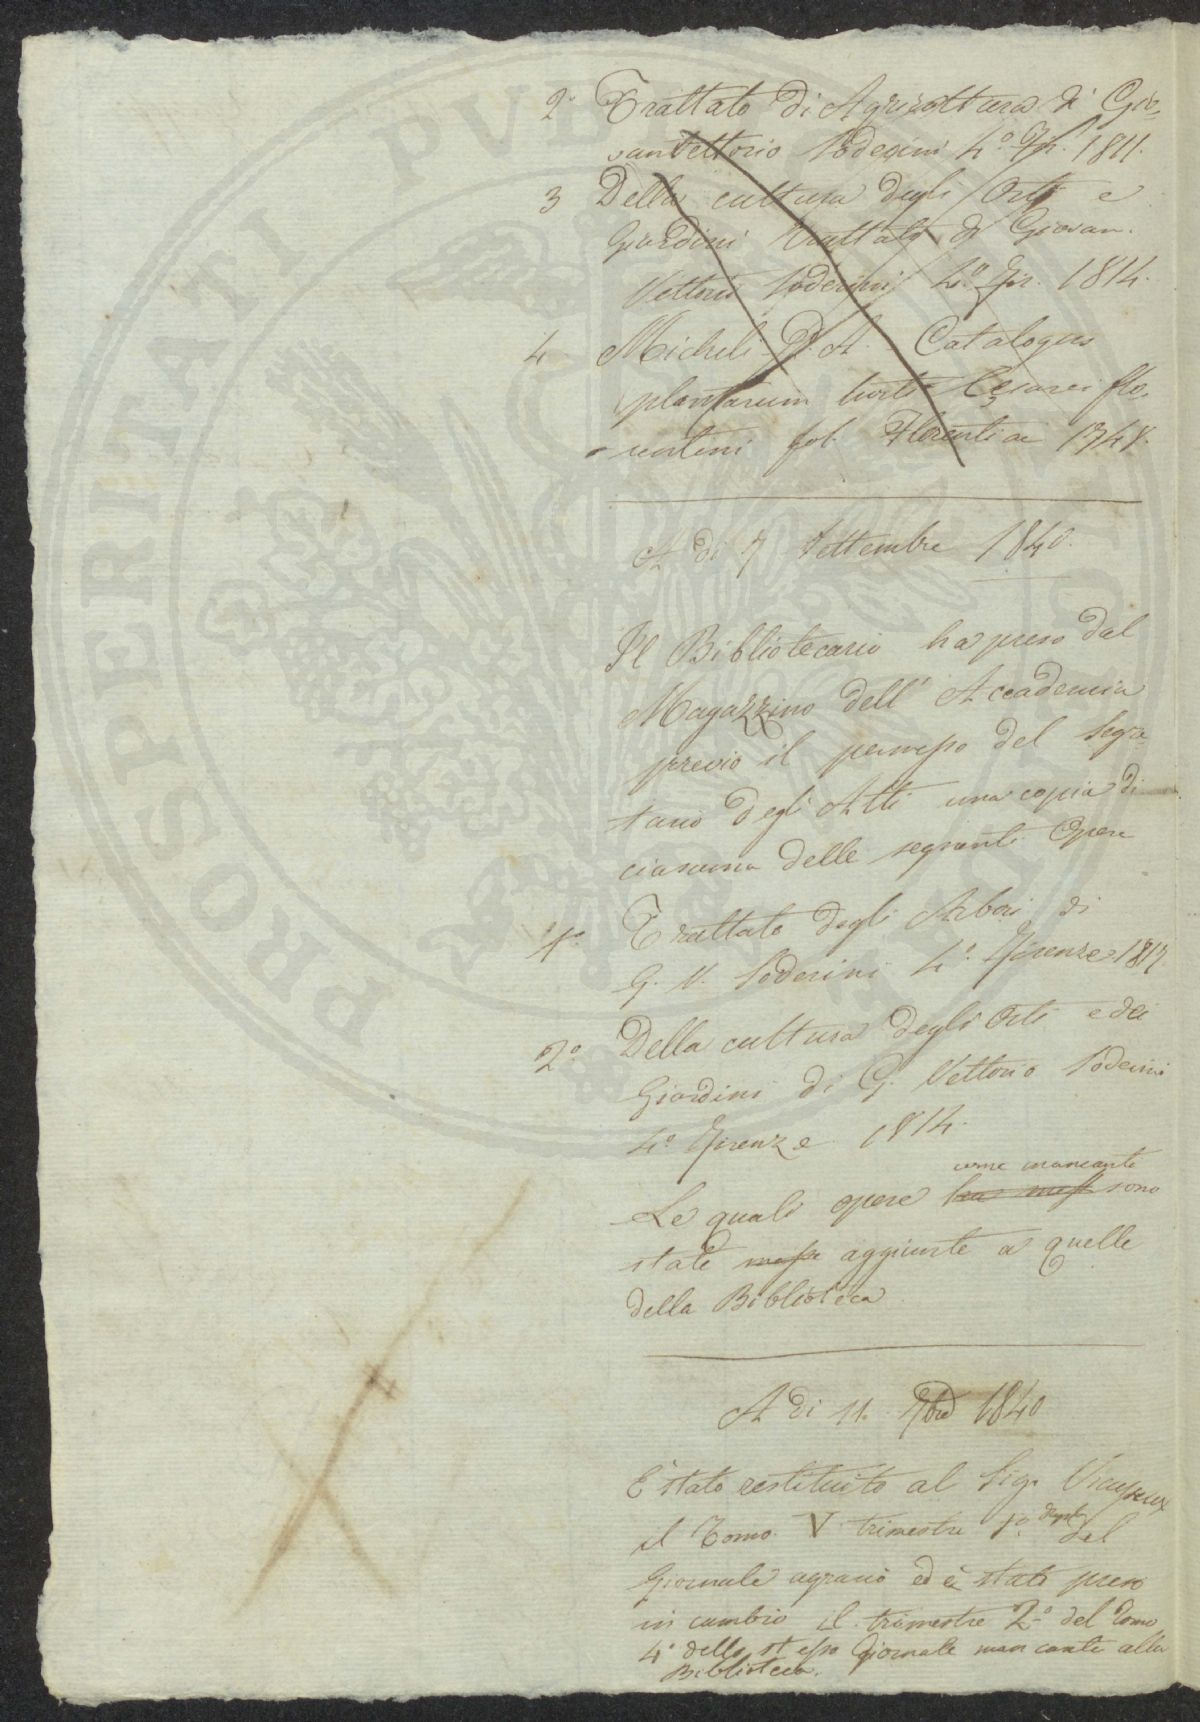 2.° Trattato di Agricoltura di Gio-
vanvettorio Soderini 4.° Fir. 1811.
3 Della cultura degli Orti e
Giardini Trattato di Giovan.
Vettorio Soderini 4.° Fir. 1814.
4 Micheli P. A. Catalogus
plantarum horti Cesarei flo-
rentini fol. Florentiae 1748.
A di 7 Settembre 1840.
Il Bibliotecario ha preso dal
Magazzino dell' Accademia
previo il permesso del Segre
tario degli Atti una copia di
ciascuna delle seguenti Opere
1.° Trattato degli Arbori di
G. V. Soderini 4.° Firenze 1817.
2.° Della cultura degli Orti e dei
Giardini di G. Vettorio Soderini
4.° Firenze 1814.
come mancanti
Le quali opere sono
state messe aggiunte a quelle
della Biblioteca.
A di 11. 7bre 1840
È stato restituito al Sig. Vieusseux
il Tomo V trimestre 1.° dupl. del
Giornale agrario ed è stato preso
in cambio il trimestre 2.° del Tomo
4.° dello stesso Giornale mancante alla
Biblioteca.
PROSPERITATI PVBLICAE